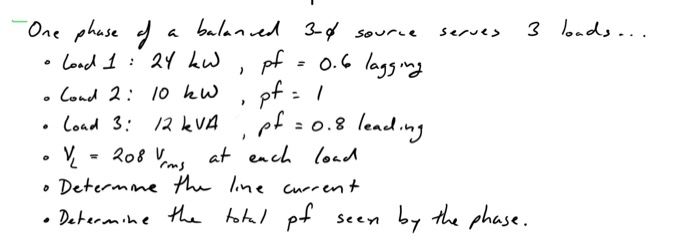 One phase of a balanced 3-φ source serves 3 loads...
• Load 1 : 24 kW , pf = 0.6 lagging
• Load 2 : 10 kW , pf = 1
• Load 3 : 12 kVA , pf = 0.8 leading
• V_L = 208 V_rms at each load
• Determine the line current
• Determine the total pf seen by the phase.